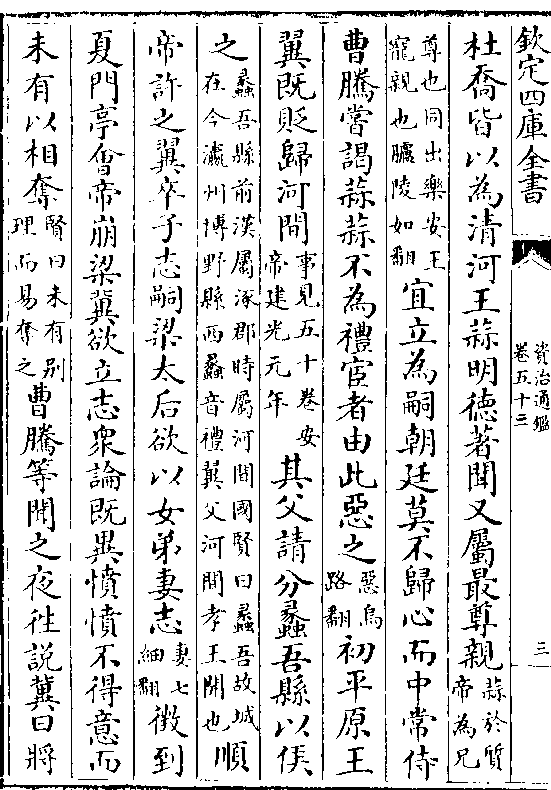 欽定四庫全書
資治通鑑
卷五十三
三
杜喬皆以為清河王蒜明德著聞又屬最尊親蒜於質
帝為兄
尊也同出樂安王
寵親也臚陵如翻宜立為嗣朝廷莫不歸心而中常侍
曹騰嘗謁蒜蒜不為禮宦者由此惡之惡烏
路翻初平原王
翼既貶歸河間事見五十卷安
帝建光元年其父請分蠡吾縣以侯
之蠡吾縣前漢屬涿郡時屬河間國賢曰蠡吾故城
在今瀛州博野縣西蠡音禮翼父河間孝王開也順
帝許之翼卒子志嗣梁太后欲以女弟妻志妻七
細翻徵到
夏門亭會帝崩梁冀欲立志衆論既異憤憤不得意而
未有以相奪賢曰未有别
理而易奪之曹騰等聞之夜往說冀曰將